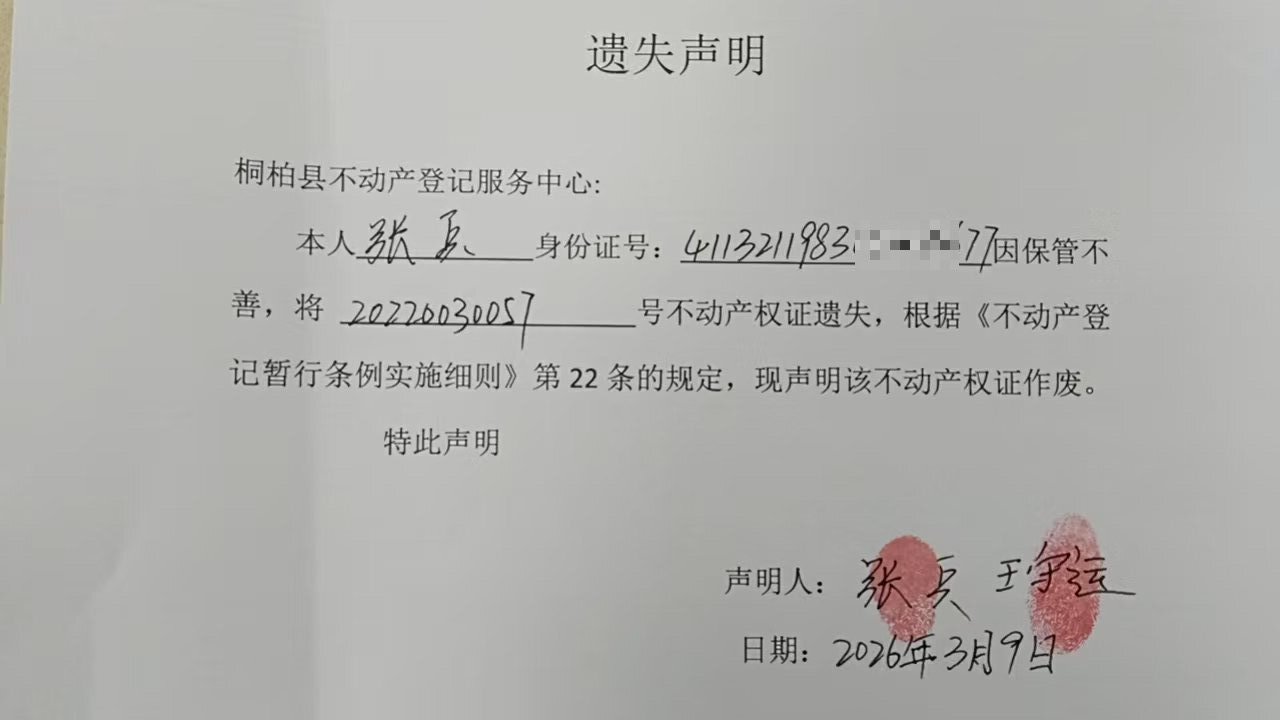 遗失声明
桐柏县不动产登记服务中心:
本人张兵 身份证号: 411321198377因保管不
善, 将 20220030057 号不动产权证遗失, 根据《不动产登
记暂行条例实施细则》第 22 条的规定, 现声明该不动产权证作废。
特此声明
声明人: 张兵 王守运
日期: 2026年3月9日